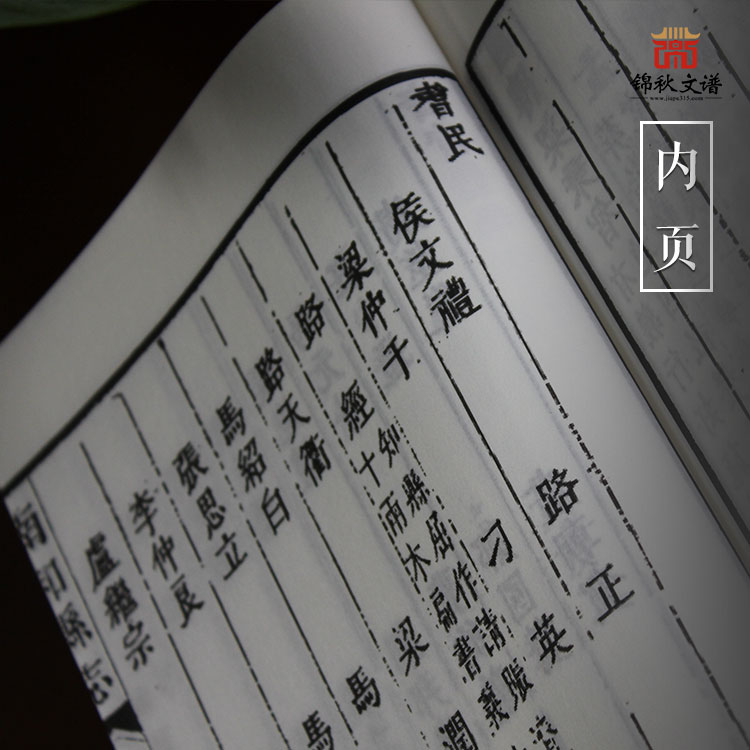 錦秋文谱
www.jiapu315.com
内页
耆民
侯文禮
路正
梁仲于
刁英
知縣屈作請
經十兩木扁書義
路
梁
路天衢
馬
馬紹白
馬
張思立
李仲良
盧繼宗
南和縣志